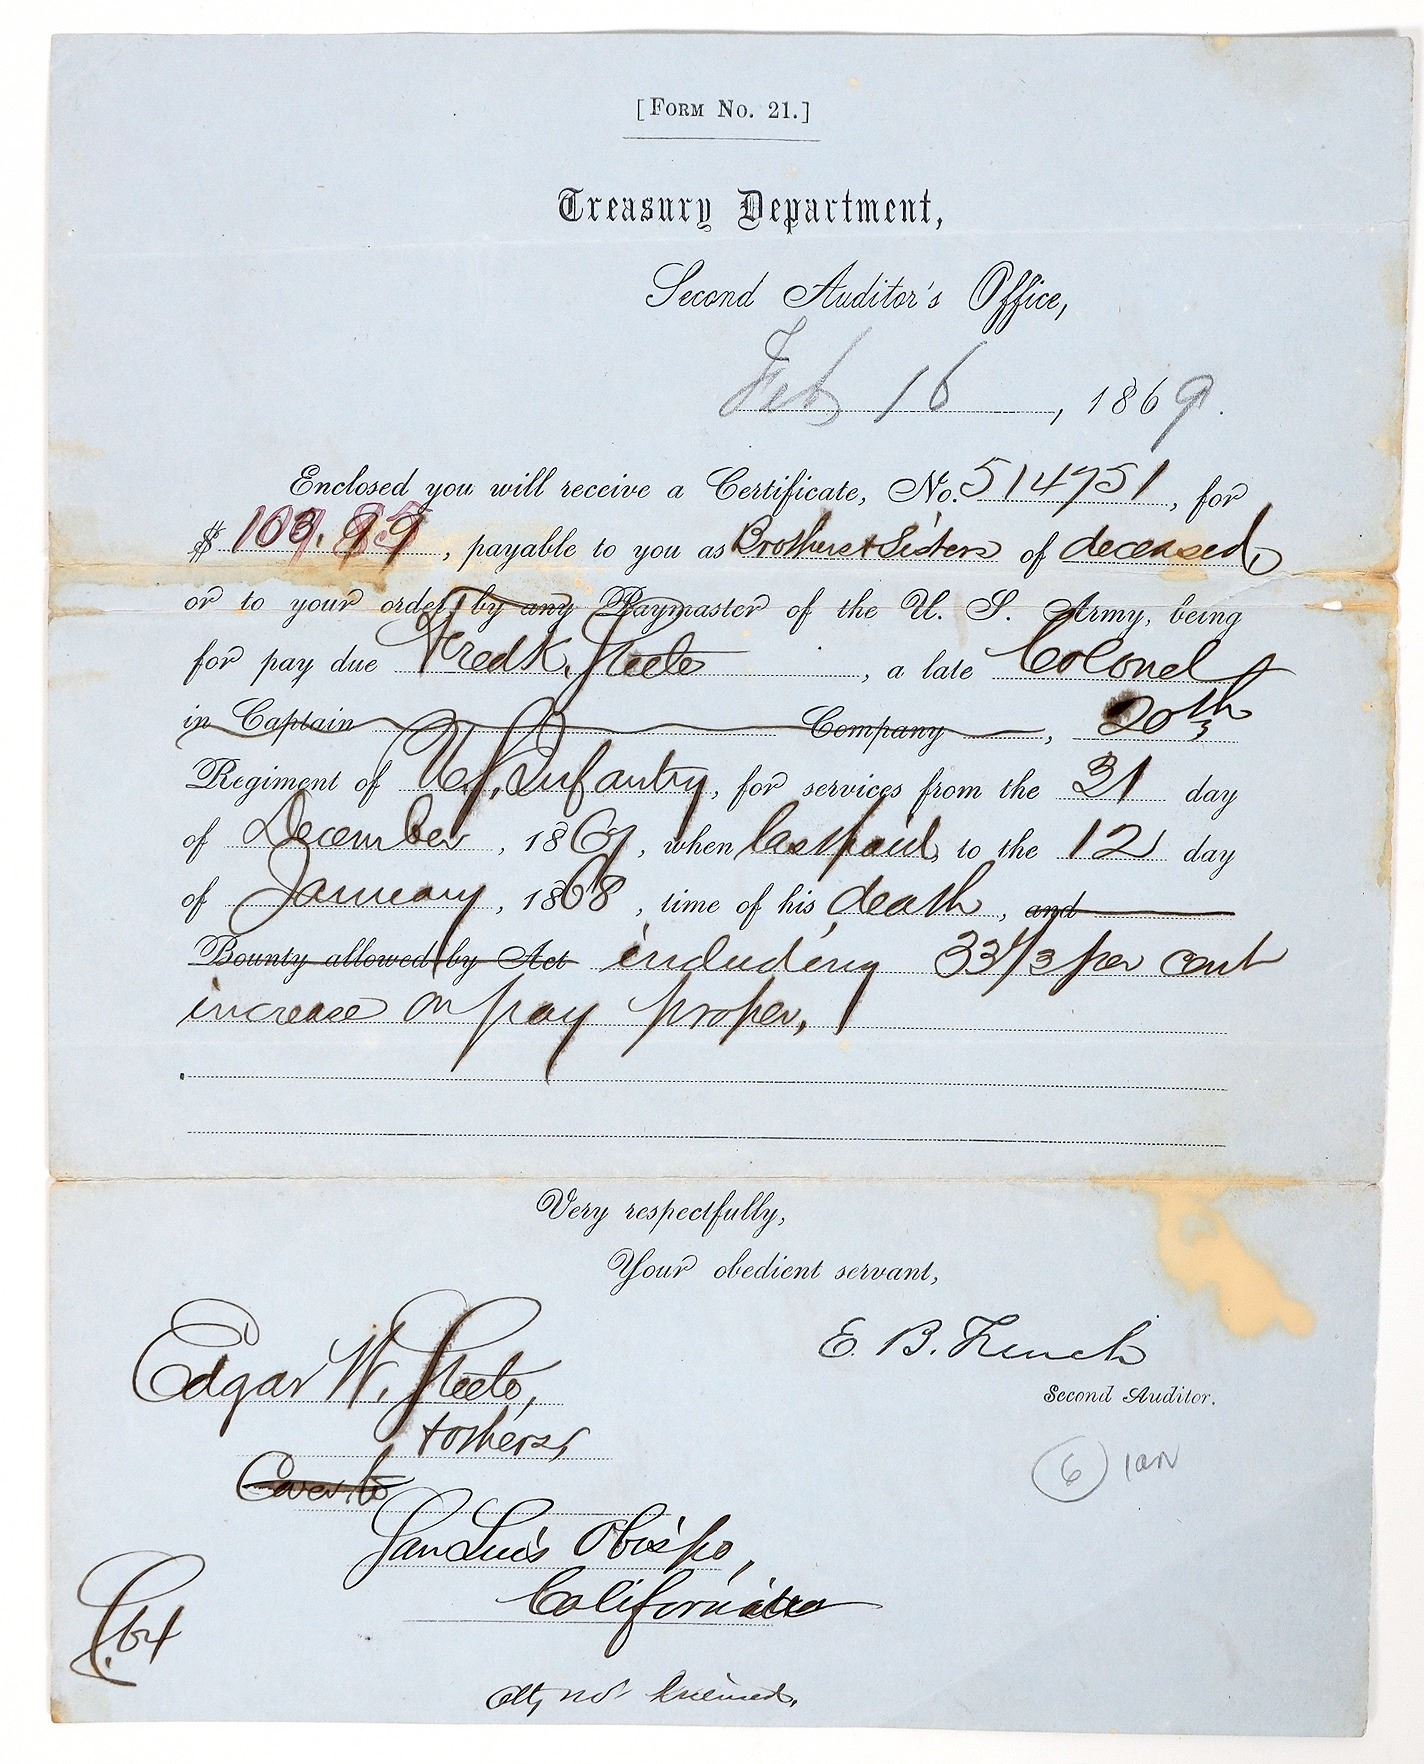 [FORM No. 21.]
Treasury Department,
Second Auditor's Office,
Feb 16, 1869.
Enclosed you will receive a Certificate, No. 514751, for
$ , payable to you as Brothers & Sisters of deceased,
or to your order, by any Paymaster of the U. S. Army, being
for pay due Fredk. Steele, a late Colonel
in Captain Company, 20th
Regiment of U.S. Infantry, for services from the 31 day
of December, 1867, when last paid, to the 12 day
of January, 1868, time of his death, and
Bounty allowed by Act including 33 1/3 per cent
increase on pay proper.
Very respectfully,
Your obedient servant,
E. B. French
Second Auditor.
Edgar W. Steele,
& others,
San Luis Obispo,
California
6
Atty not licensed.